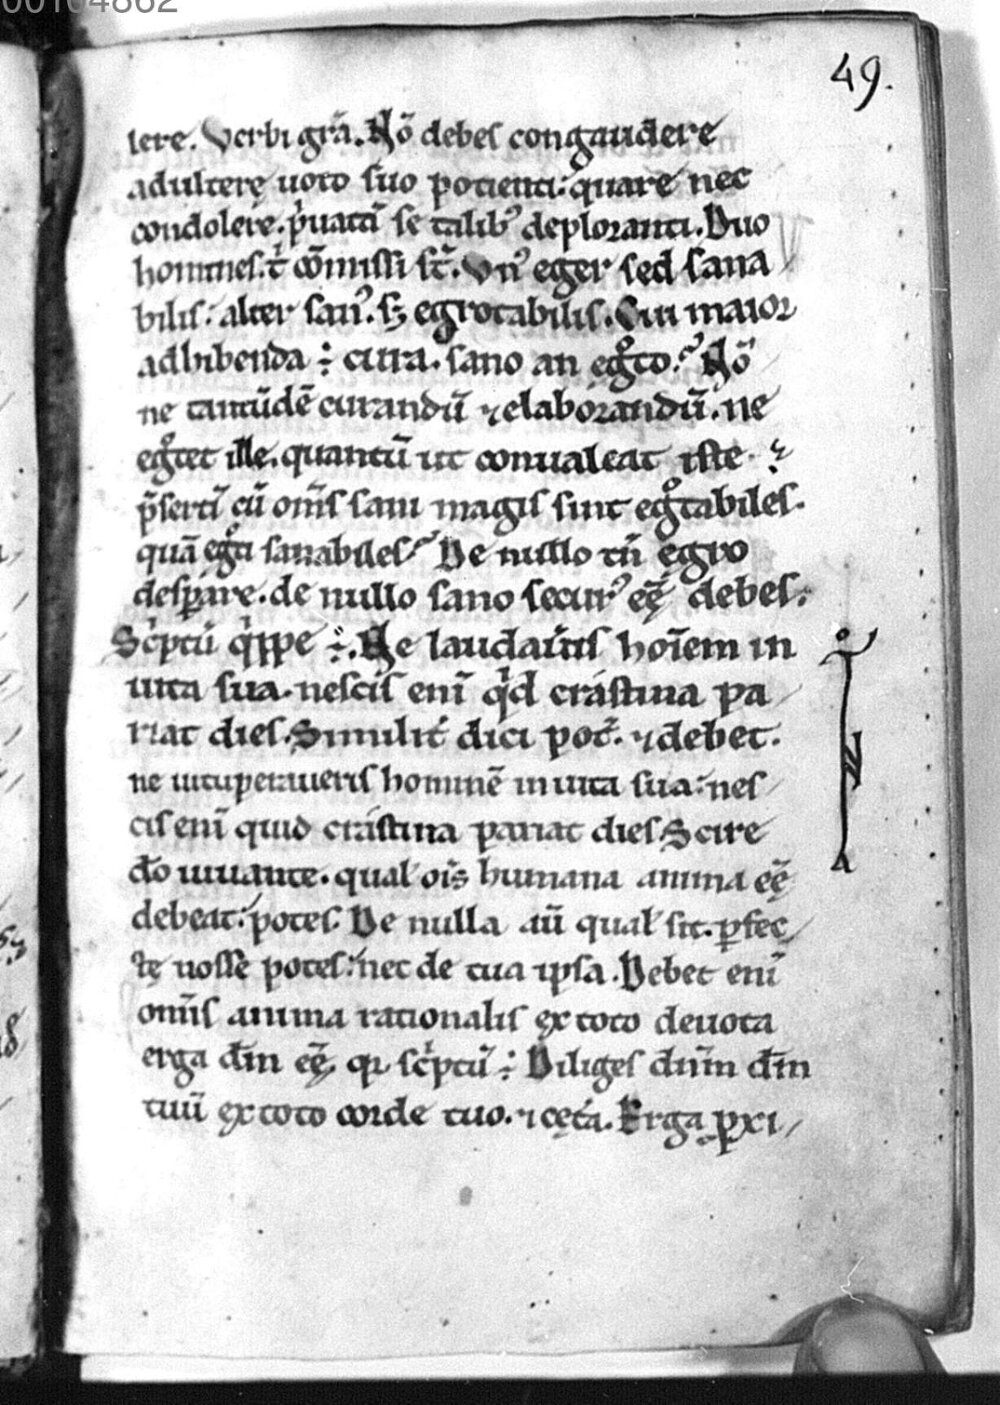 00104862
49.
lere. Verbi grā. Nō debes congaudere
adulterę uoto suo potienti: quare nec
condolere. p̍uatā se talib⁹ deploranti. Duo
homines. t̍ cōmissi st̄. Vn⁹ eger sed sana
bilis: alter san⁹. sꝫ egrotabilis. Cui maior
adhibenda ÷ cura. sano an egͦto? Nō
ne tantūdē curandū ⁊ elaborandū. ne
egͦtet ille. quantū ut conualeat iste?
p̄sertī cū om̄s sani magis sint egͦtabiles.
quā egͦti sanabiles? De nullo tn̄ egro
desꝑare. de nullo sano secur⁹ eę̄ debes.
Sc̍ptū q̍ppe ÷. Ne laudau̍tis hoīem in
uita sua. nescis enī q̍d crástina pa
riat dies. Similit̍ dici pot̄. ⁊ debet.
ne uituperaueris hominē in uita sua: nes
cis enī quid crástina pariat dies. Scire
d̄o uiuante. qual' oīs humana anima eę̄
debeat: potes. De nulla aū qual' sit. ꝑfec
tę nosse potes: nec de tua ipsa. Debet enī
om̄is anima rationalis ex toto deuota
erga d̄m eę̄. qꝛ sc̍ptū ÷ Diliges dn̄m d̄m
tuū ex toto corde tuo. ⁊ cęt̍a. Erga ꝓxi